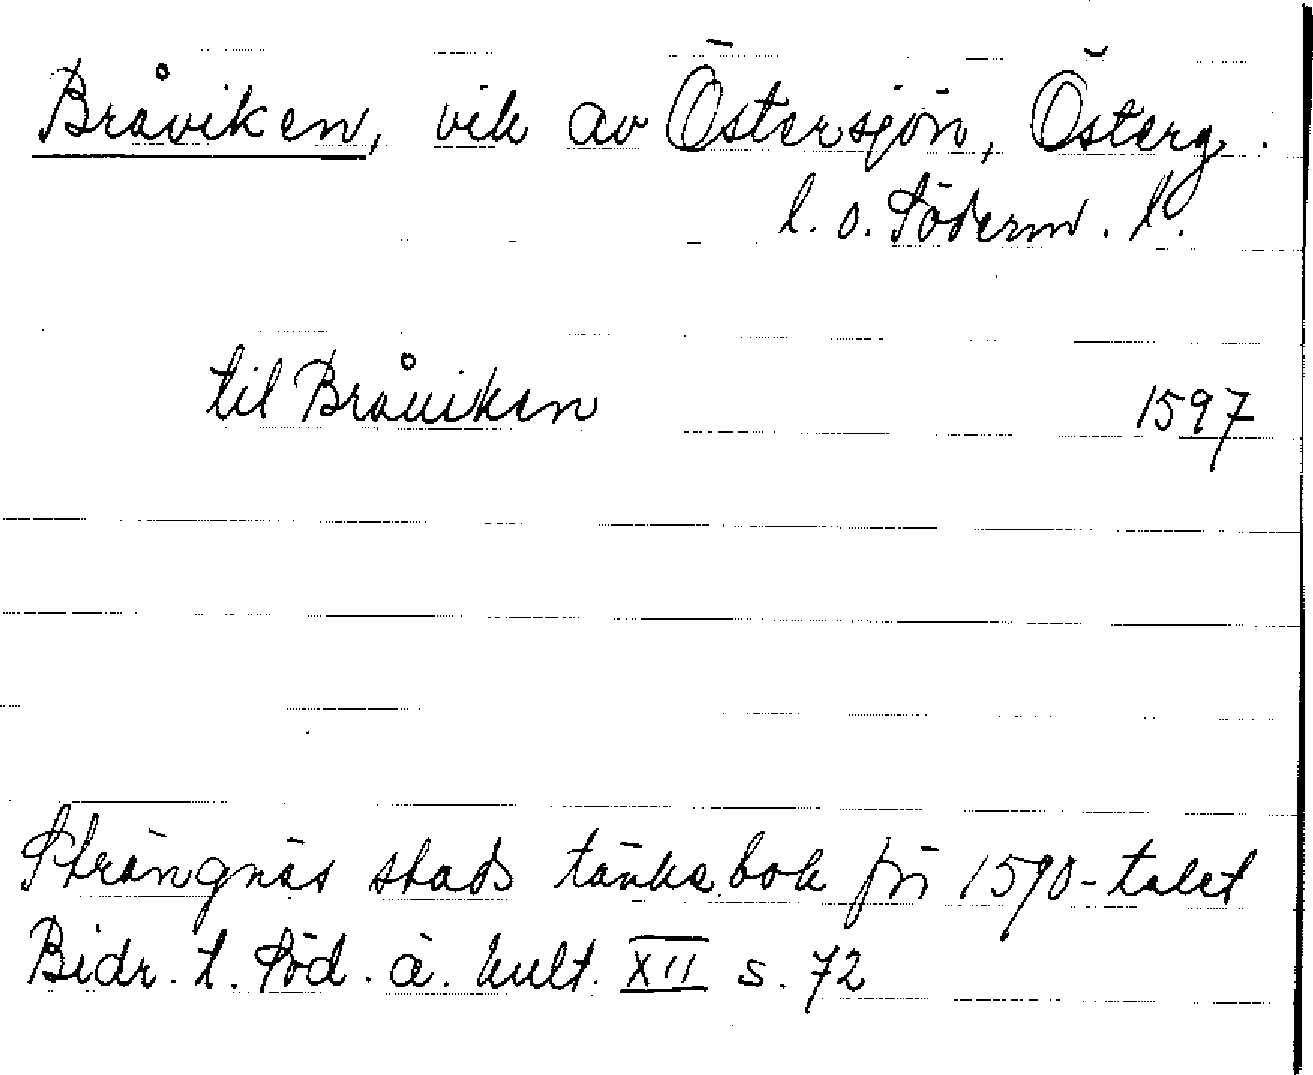 Bråviken, vik av Östersjön, Österg.
l. o. Söderm. l.
til Bråuiken 1597
Strängnäs stads tänkebok frn 1590-talet
Bidr. t. Söd. ä. kult. XII s. 72